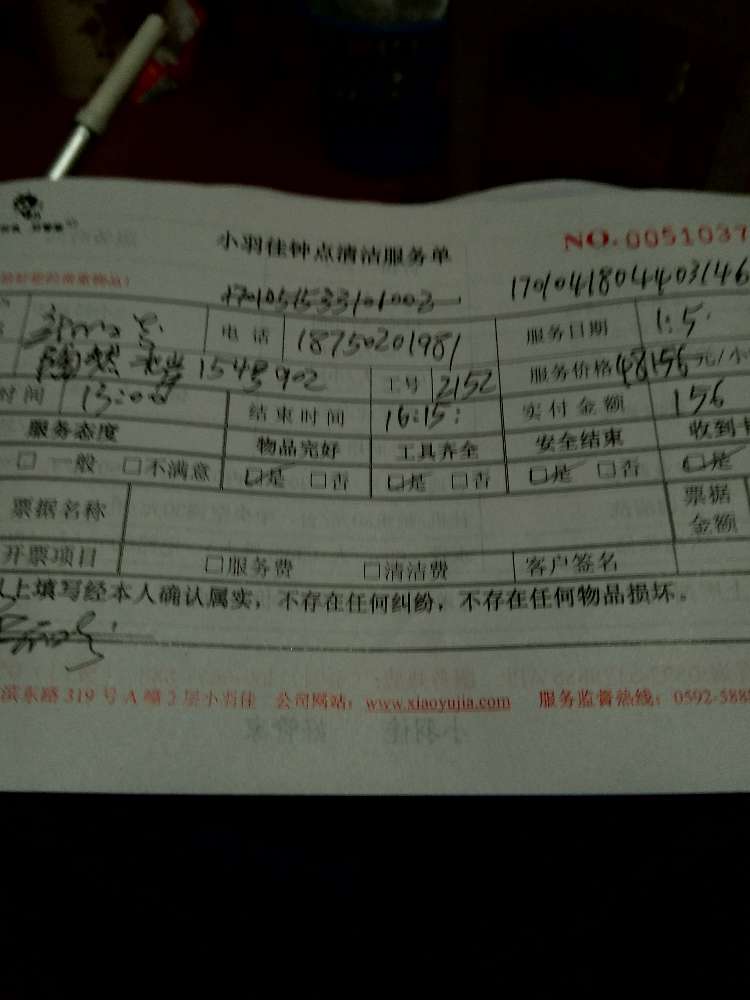 小羽佳钟点清洁服务单 NO. 0051037
1701051533101003 1701041804403146
电话 18750201981 服务日期 1.5.
1548902 工号 2152 服务价格 48 156 元/小
时间 13:00 结束时间 16:15: 实付金额 156
服务态度 物品完好 工具齐全 安全结束 收到
□一般 □不满意 □是 □否 □是 □否 □是 □否 □是
票据名称 票据金额
开票项目 □服务费 □清洁费 客户签名
以上填写经本人确认属实，不存在任何纠纷，不存在任何物品损坏。
滨东路 319 号 A 幢 2 层小羽佳 公司网站：www.xiaoyujia.com 服务监督热线：0592-588